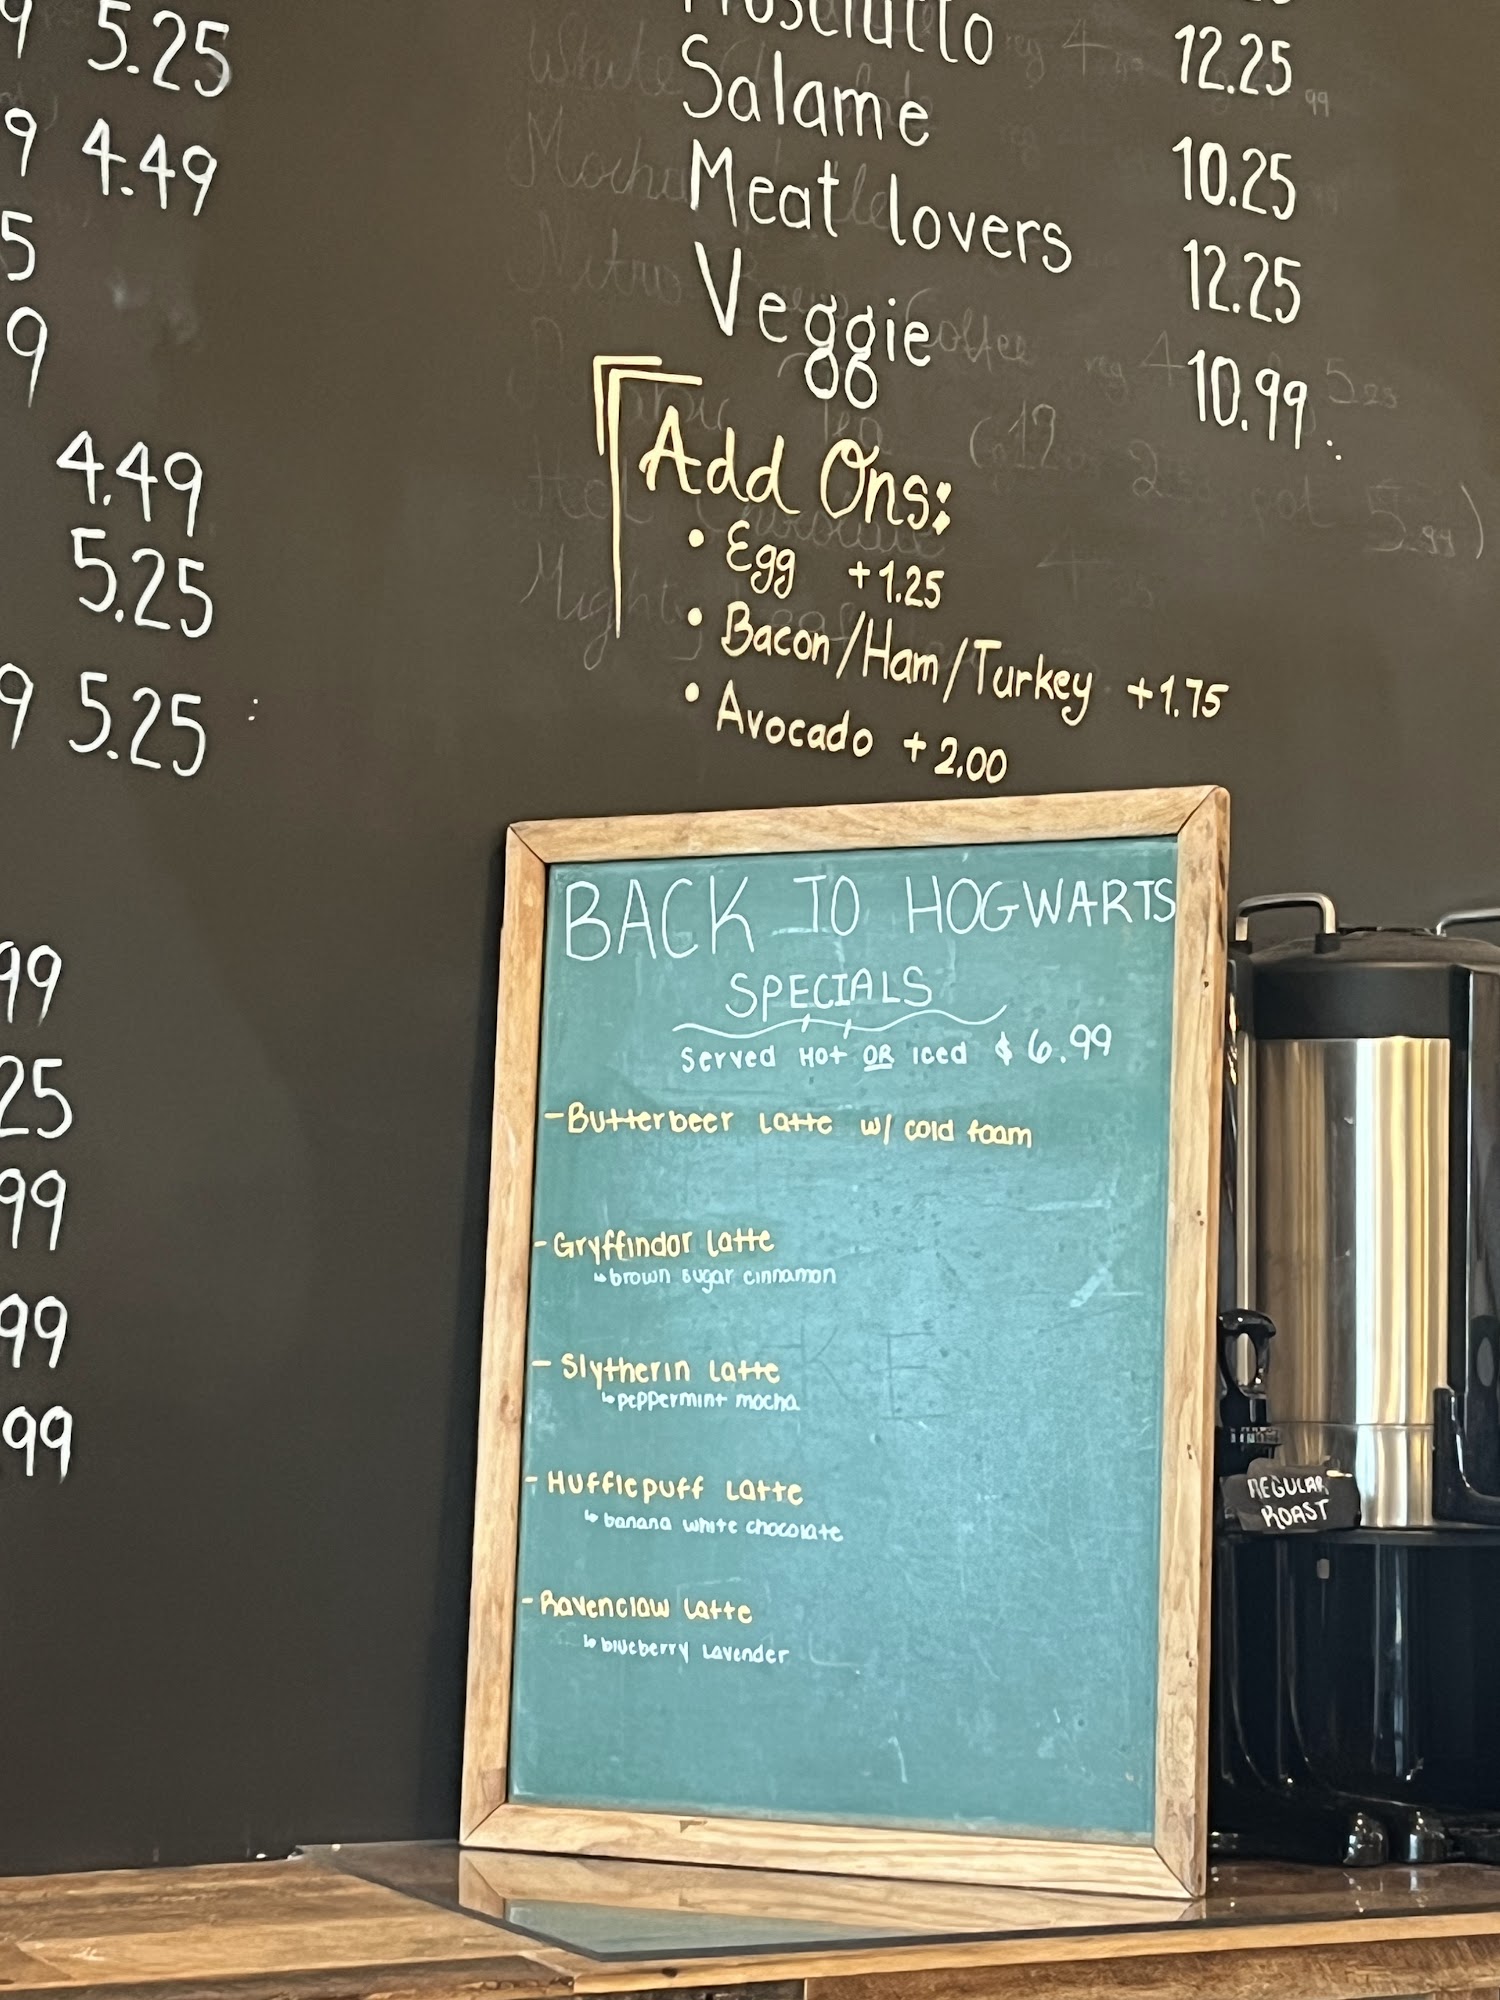 9 5.25
9 4.49
5
9
4.49
5.25
9 5.25
99
25
99
99
99
Prosciutto 12.25
Salame 10.25
Meat lovers 12.25
Veggie 10.99
Add Ons:
• Egg +1.25
• Bacon/Ham/Turkey +1.75
• Avocado +2.00
BACK TO HOGWARTS
SPECIALS
Served Hot OR iced $6.99
- Butterbeer Latte w/ cold foam
- Gryffindor Latte
↳ brown sugar cinnamon
- Slytherin Latte
↳ peppermint mocha
- Hufflepuff Latte
↳ banana white chocolate
- Ravenclaw Latte
↳ blueberry lavender
REGULAR
ROAST